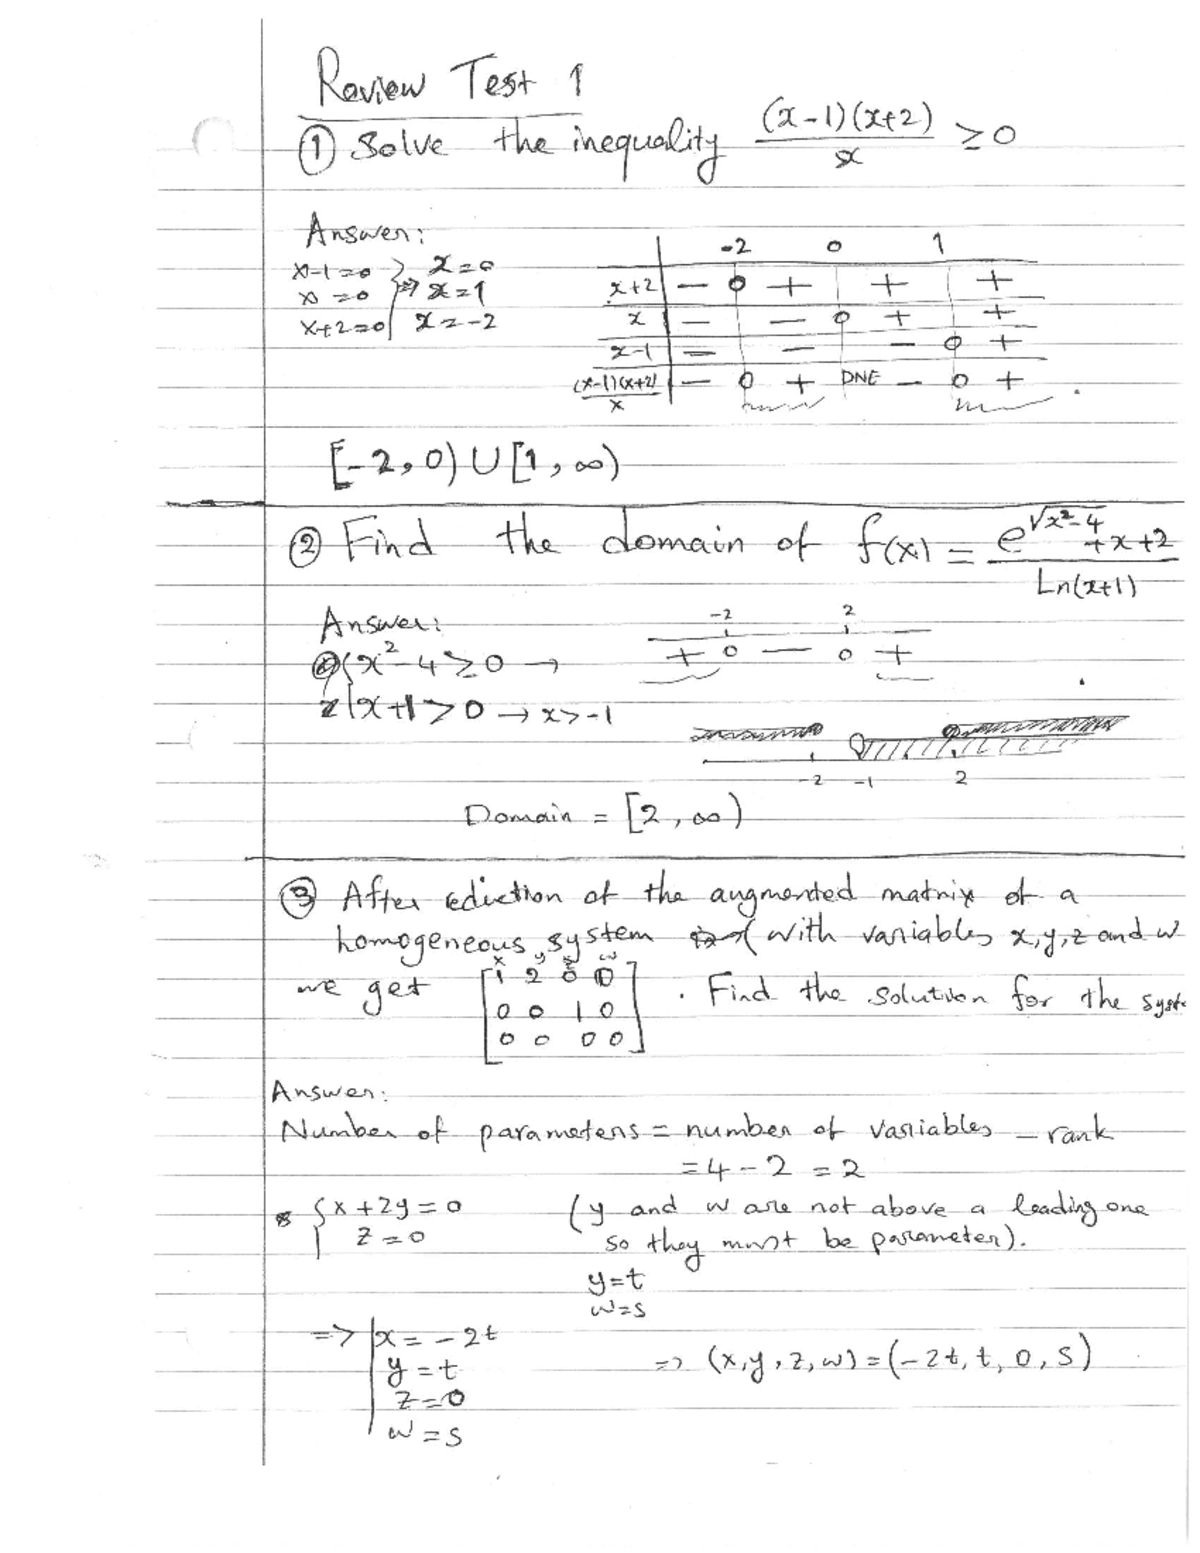 Review Test 1
① Solve the inequality (x-1)(x+2)/x ≥ 0
Answer:
x-1=0 } x=0
x=0 } ⇒ x=1
x+2=0 } x=-2
-2 0 1
x+2 - 0 + + +
x - - 0 + +
x-1 - - - 0 +
(x-1)(x+2)/x - 0 + DNE - 0 +
[-2,0) ∪ [1,∞)
② Find the domain of f(x) = (e^√(x²-4) + x+2)/Ln(x+1)
Answer:
-2 2
x²-4 ≥ 0 → + 0 - 0 +
x+1 > 0 → x>-1
-2 -1 2
Domain = [2,∞)
③ After eduction of the augmented matrix of a
homogeneous system with variables x,y,z and w
x y z w
we get [1 2 0 0 . Find the solution for the syst
0 0 1 0
0 0 0 0]
Answer:
Number of parameters = number of variables - rank
= 4 - 2 = 2
{ x+2y=0 (y and w are not above a leading one
z=0 so they must be parameter).
y=t
w=s
=> x = -2t
y = t => (x,y,z,w)=(-2t,t,0,s)
z=0
w=s